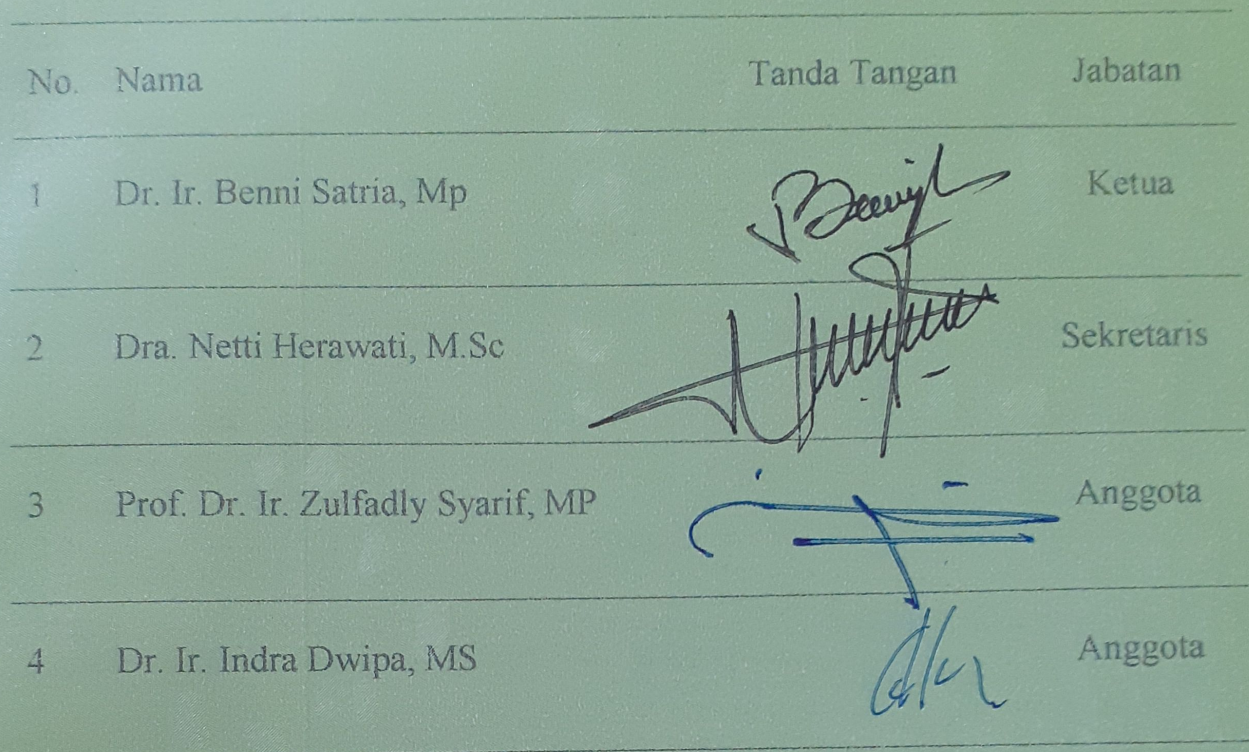 No. Nama Tanda Tangan Jabatan
1 Dr. Ir. Benni Satria, Mp Ketua
2 Dra. Netti Herawati, M.Sc Sekretaris
3 Prof. Dr. Ir. Zulfadly Syarif, MP Anggota
4 Dr. Ir. Indra Dwipa, MS Anggota